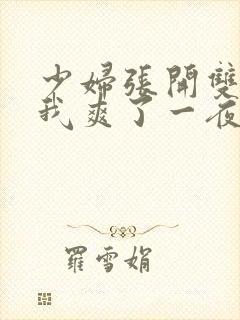 少婦張開雙
我爽了一夜
羅雪娟